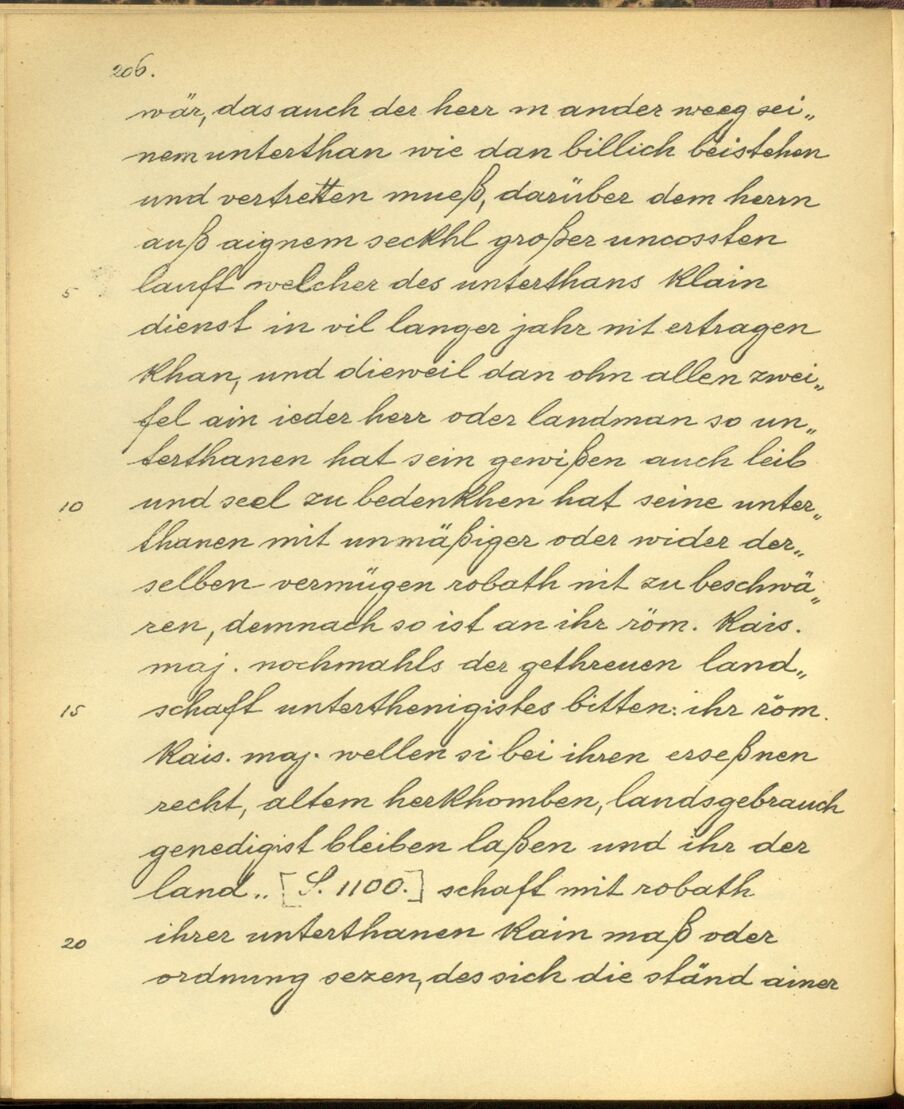 206.
wär, das auch der herr in ander weeg sei„
nem unterthan wie dan billich beistehen
und vertretten mueß, darüber dem herrn
auß aignem seckhl großer uncossten
5 laufft welcher des unterthans klain
dienst in vil langer jahr nit ertragen
khan, und dieweil dan ohn allen zwei„
fel ain ieder herr oder landman so un„
terthanen hat sein gewißen auch leib
10 und seel zu bedenkhen hat seine unter„
thanen mit unmäßiger oder wider der„
selben vermügen robath nit zu beschwä„
ren, demnach so ist an ihr röm. kais.
maj. nochmahls der gethreuen land„
15 schaft unterthenigistes bitten: ihr röm.
kais. maj. wellen si bei ihren erseßnen
recht, altem herkhomben, landsgebrauch
genedigist bleiben laßen und ihr der
land„ [S. 1100.] schaft mit robath
20 ihrer unterthanen kain maß oder
ordnung sezen, des sich die ständ ainer